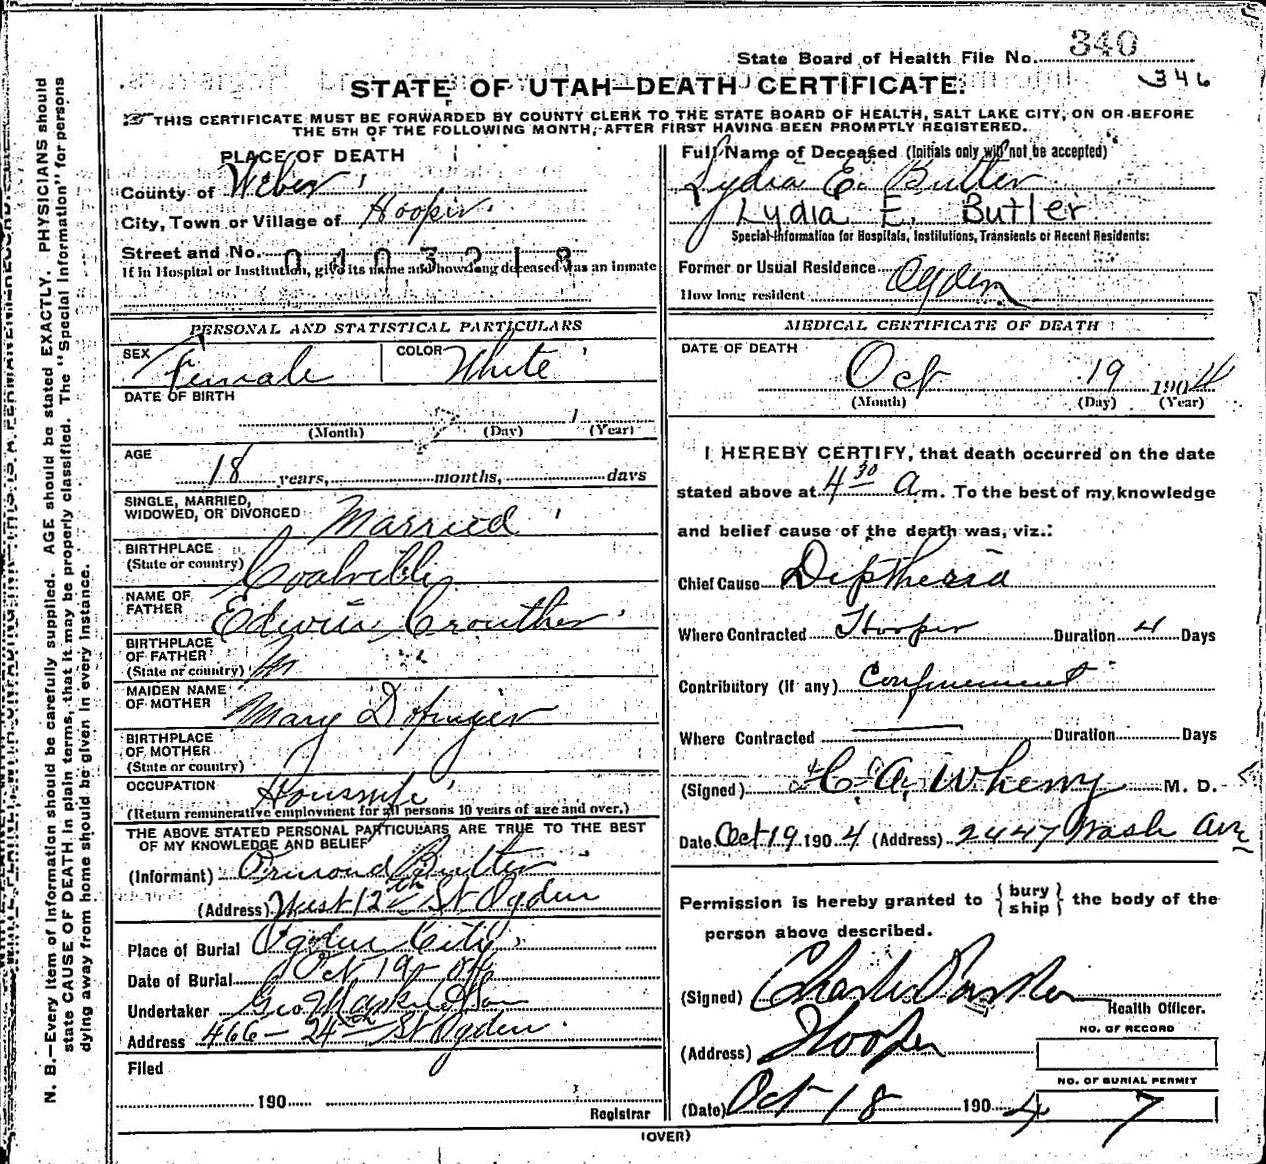 State Board of Health File No. 340
346
STATE OF UTAH—DEATH CERTIFICATE.
THIS CERTIFICATE MUST BE FORWARDED BY COUNTY CLERK TO THE STATE BOARD OF HEALTH, SALT LAKE CITY, ON OR BEFORE
THE 5TH OF THE FOLLOWING MONTH, AFTER FIRST HAVING BEEN PROMPTLY REGISTERED.
N. B.—Every item of information should be carefully supplied. AGE should be stated EXACTLY. PHYSICIANS should
state CAUSE OF DEATH in plain terms, that it may be properly classified. The "Special Information" for persons
dying away from home should be given in every instance.
PLACE OF DEATH
County of Weber
City, Town or Village of Hooper
Street and No. 0403218
If in Hospital or Institution, give its name and how long deceased was an inmate
PERSONAL AND STATISTICAL PARTICULARS
SEX Female COLOR White
DATE OF BIRTH
1
(Month) (Day) (Year)
AGE
18 years, months, days
SINGLE, MARRIED,
WIDOWED, OR DIVORCED Married
BIRTHPLACE
(State or country) Coalville
NAME OF
FATHER Edwin Crouther
BIRTHPLACE
OF FATHER
(State or country)
MAIDEN NAME
OF MOTHER Mary
BIRTHPLACE
OF MOTHER
(State or country)
OCCUPATION Housewife
(Return remunerative employment for all persons 10 years of age and over.)
THE ABOVE STATED PERSONAL PARTICULARS ARE TRUE TO THE BEST
OF MY KNOWLEDGE AND BELIEF
(Informant) Ormond Butler
(Address) West 12th St Ogden
Place of Burial Ogden City
Date of Burial Oct 19 - 04
Undertaker Geo
Address 466 - 24th St Ogden
Filed
190
Registrar
Full Name of Deceased (Initials only will not be accepted)
Lydia E. Butler
Lydia E. Butler
Special Information for Hospitals, Institutions, Transients or Recent Residents:
Former or Usual Residence Ogden
How long resident
MEDICAL CERTIFICATE OF DEATH
DATE OF DEATH
Oct 19 1904
(Month) (Day) (Year)
I HEREBY CERTIFY, that death occurred on the date
stated above at 4 30 a m. To the best of my knowledge
and belief cause of the death was, viz.:
Chief Cause Diptheria
Where Contracted Hooper Duration 4 Days
Contributory (if any) Confinement
Where Contracted Duration Days
(Signed) M. D.
Date Oct 19 1904 (Address) 2447 Wash Ave
Permission is hereby granted to { bury
ship } the body of the
person above described.
(Signed) Charles Parker
Health Officer.
(Address) Hooper
NO. OF RECORD
NO. OF BURIAL PERMIT
(Date) Oct 18 1904 7
(OVER)